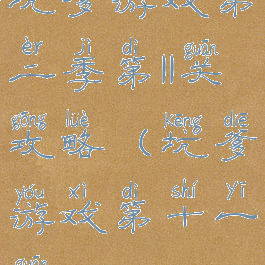 坑爹游戏第
èr jì dì guān
二季第11关
gōng lüè kēng diē
攻略(坑爹
yóu xì dì shí yī
游戏第十一
guān